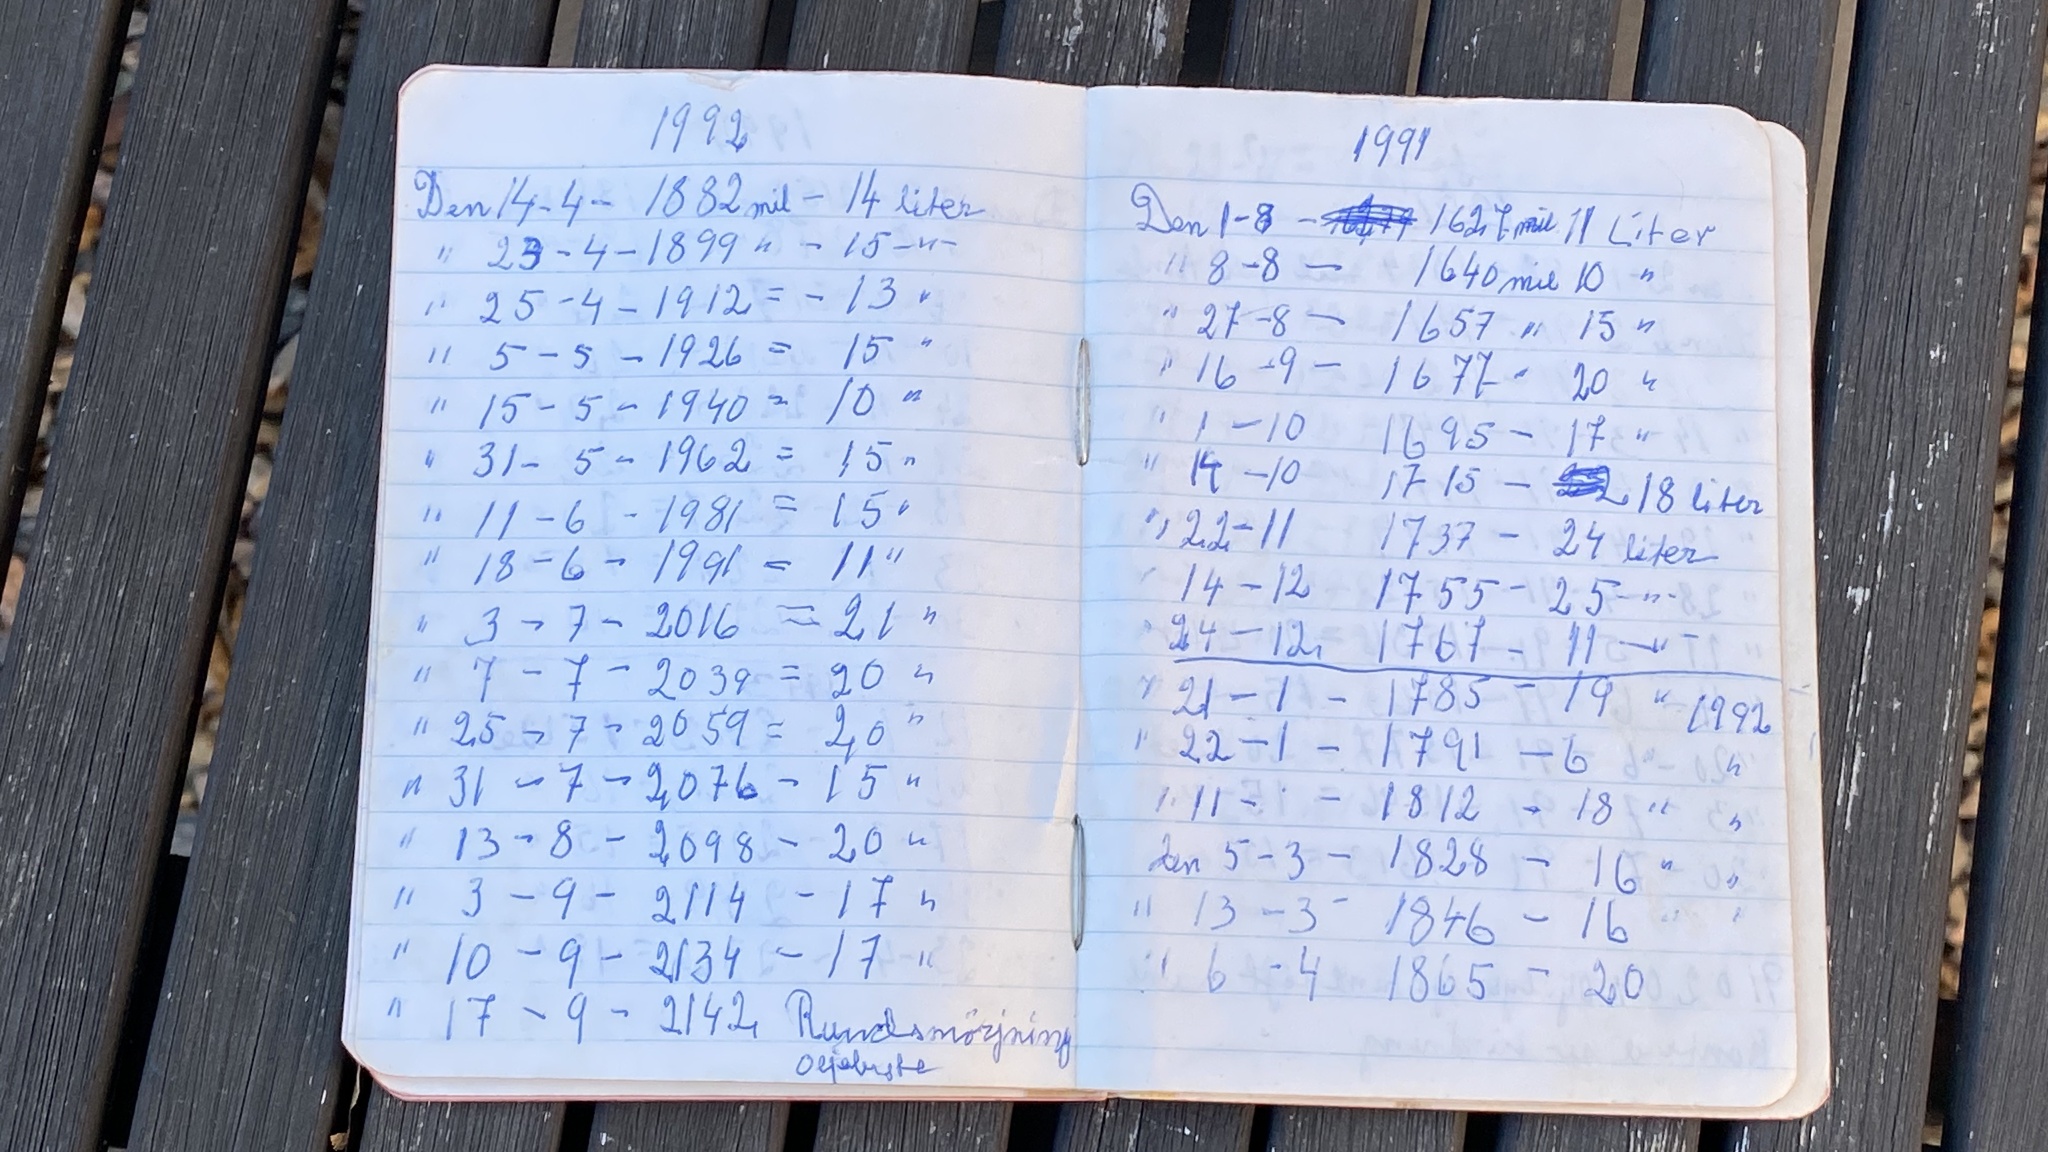 1992
Den 14-4- 1882 mil - 14 liter
" 23-4-1899 " - 15-"-
" 25-4-1912 = - 13 "
" 5-5-1926 = 15 "
" 15-5-1940 = 10 "
" 31-5-1962 = 15 "
" 11-6-1981 = 15 "
" 18-6-1991 = 11 "
" 3-7-2016 = 21 "
" 7-7-2039 = 20 "
" 25-7-2059 = 20 "
" 31-7-2076 - 15 "
" 13-8-2098 - 20 "
" 3-9-2114 - 17 "
" 10-9-2134 - 17 "
" 17-9-2142 Rundsmörjning
1991
Den 1-8 - 1627 mil 11 Liter
" 8-8 - 1640 mil 10 "
" 27-8 - 1657 " 15 "
" 16-9 - 1677 - 20 "
" 1-10 1695 - 17 "
" 14-10 1715 - 18 liter
" 22-11 1737 - 24 liter
" 14-12 1755 - 25 -"-
" 24-12 1767 - 11 -"-
" 21-1 - 1785 - 19 " 1992
" 22-1 - 1791 - 6 "
" 11- - 1812 - 18 " "
Den 5-3 - 1828 - 16 " "
" 13-3 - 1846 - 16 " "
" 6-4 1865 - 20